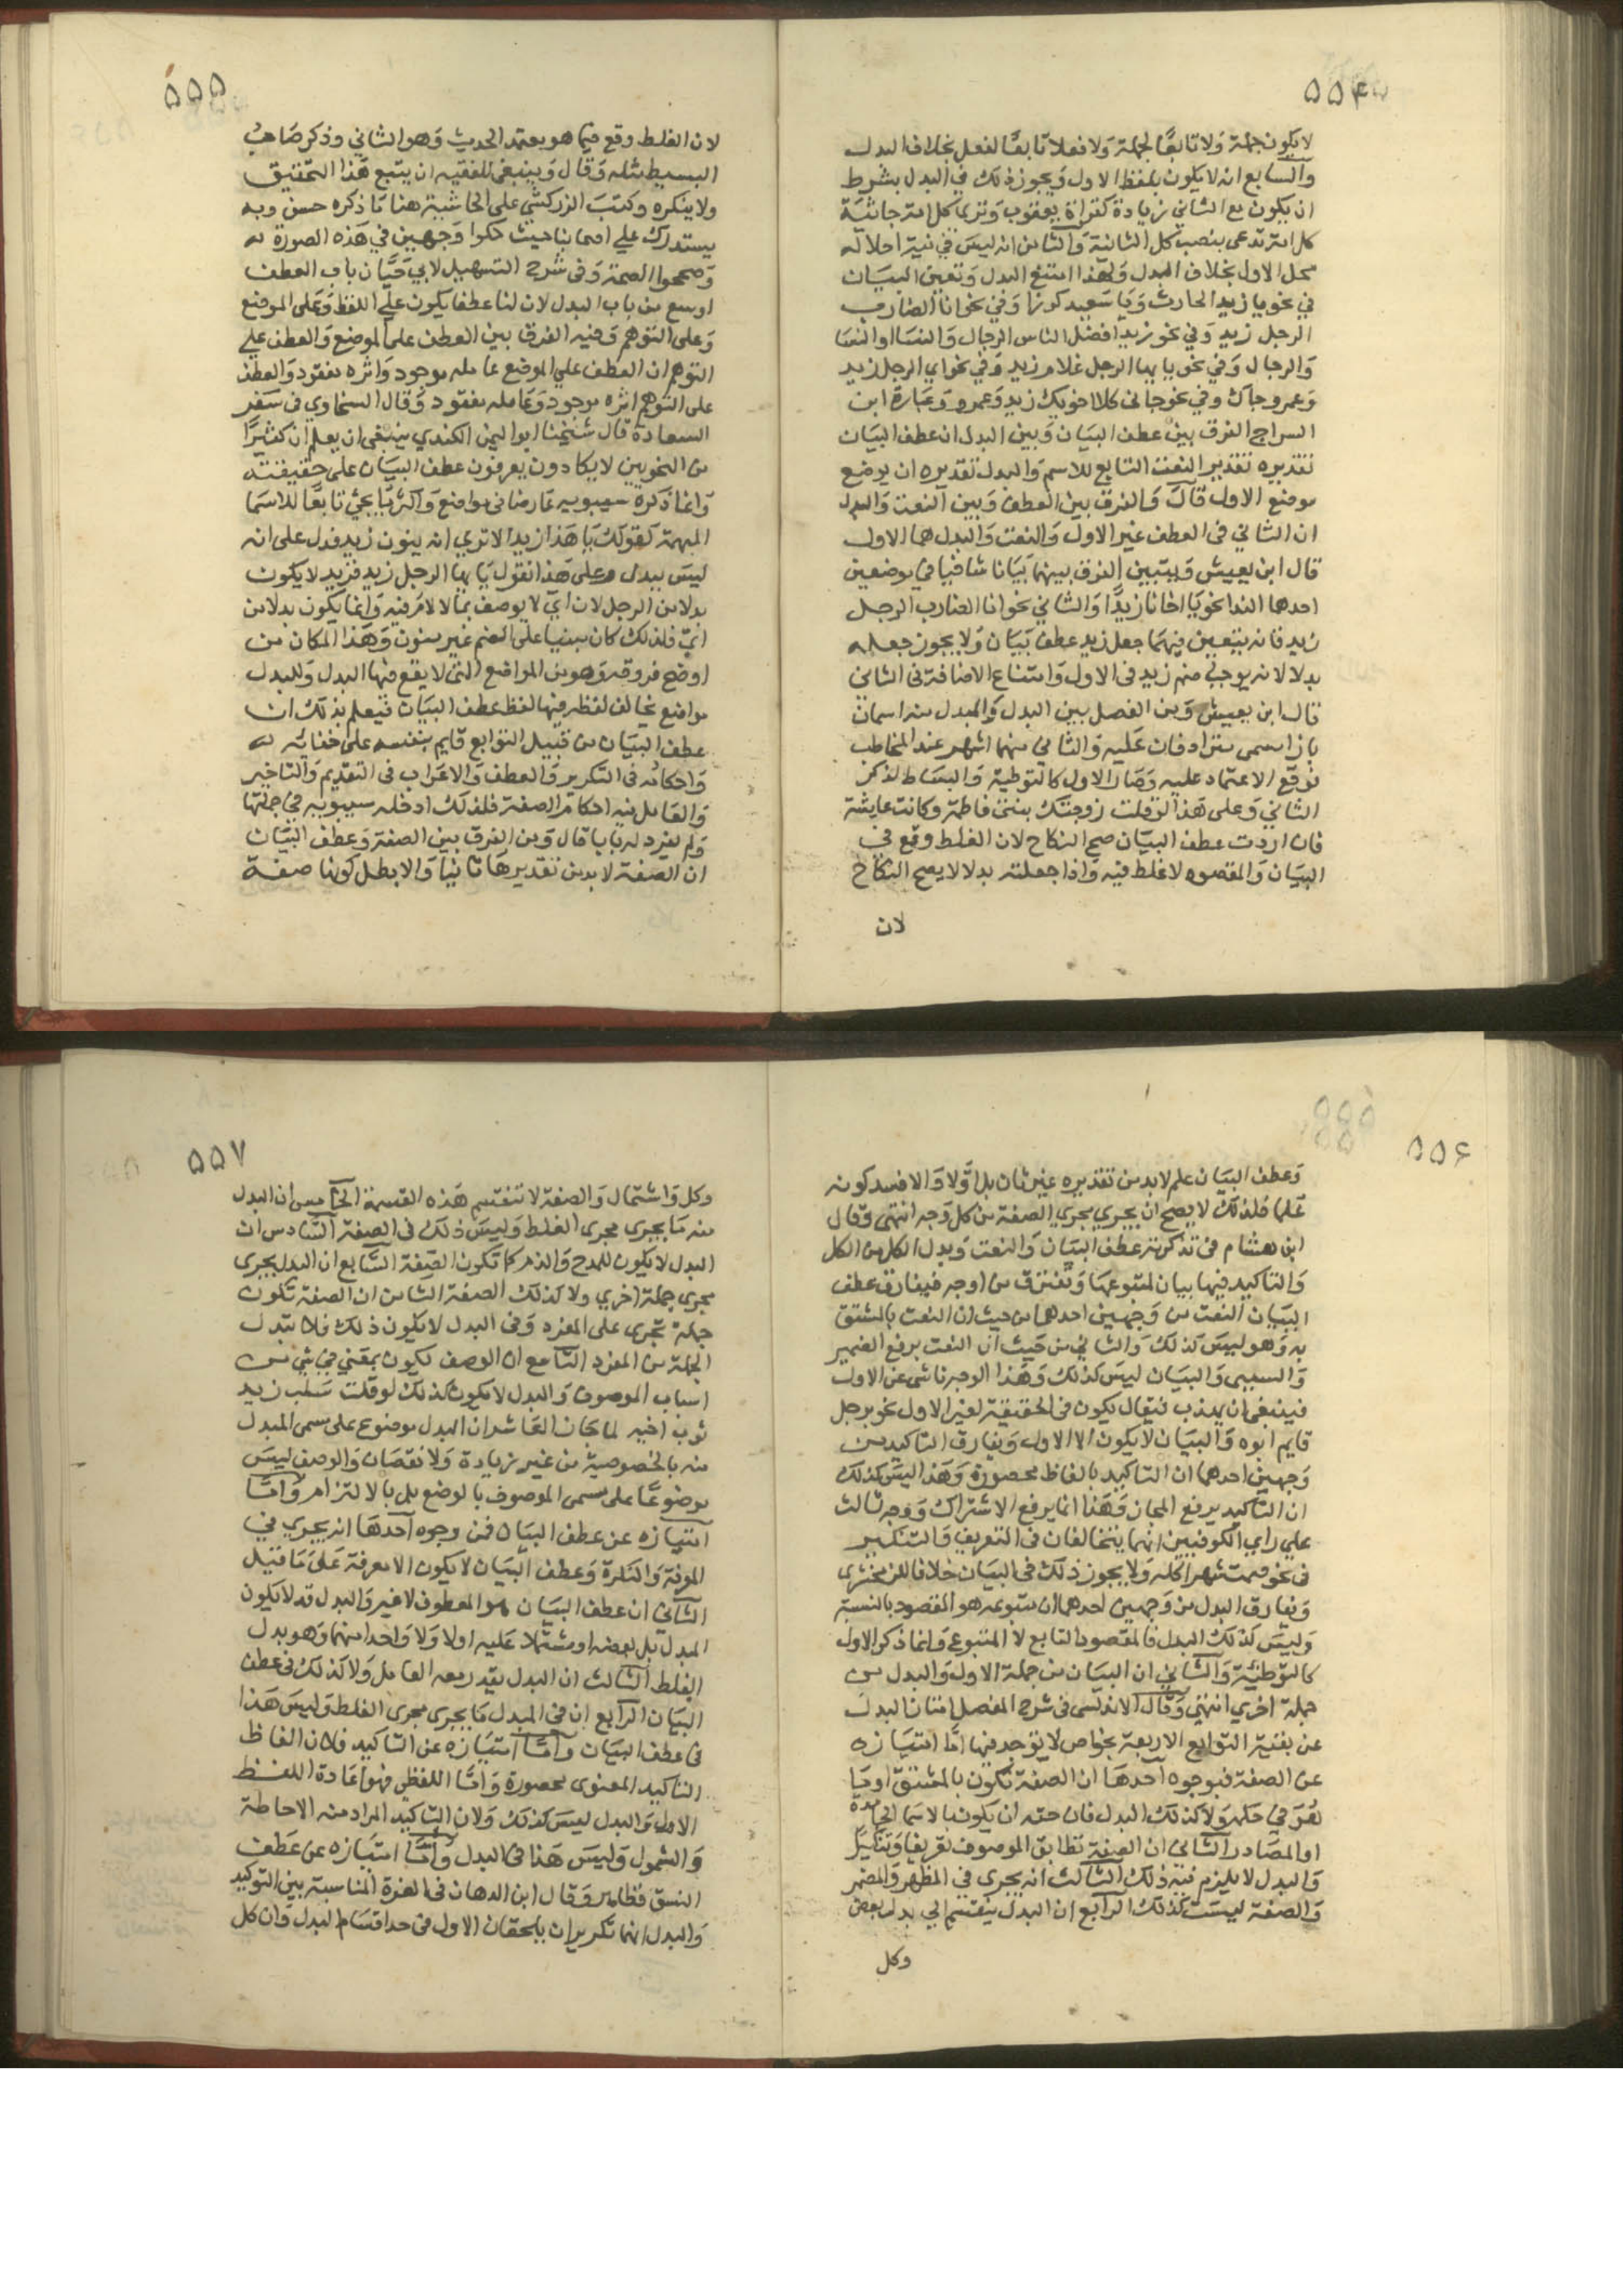 ۵۵۴
لا يكون جملة وَلا تابعًا لجملة وَلا فعلا تابعًا لفعل بخلاف البدل
والسابع انه لا يكون بلفظ الاول وَيجوز ذلك في البدل بشرط
ان يكون مع الثاني زيادة كقراة يعقوب وَترى كل امة جاثية
كل امة تدعى بنصب كل الثانية وَالثامن انه ليس في نية احلاله
محل الاول بخلاف البدل وَلهذا امتنع البدل وَتعين البيان
في نحو يا زيد الحارث وَيا سَعيد كرز وَفي نحو انا الضارب
الرجل زيد وَفي نحو زيد افضل الناس الرجال وَالنسا او النسا
وَالرجال وَفي نحو يا يها الرجل غلام زيد وَفي نحو اي الرجل زيد
وَعمرو جاك وفي نحو جاني كلا اخويك زيد وَعمرو وَعبارة ابن
السراج الفرق بين عطف البيان وَبين البدل ان عطف البيان
تقديره تقدير النعت التابع للاسم وَالبدل تقديره ان يوضع
موضع الاول قال وَالفرق بين العطف وَبين النعت وَالبدل
ان الثاني في العطف غير الاول وَالنعت وَالبدل هما الاول
قال ابن يعيش وَيتبين الفرق بينهما بَيَانا شافيا في موضعين
احدها الندا نحو يا اخانا زيدًا وَالثاني نحو انا الضارب الرجل
زيد فانه يتعين فيهما جعل زيد عطف بَيَان وَلا يجوز جعله
بدلا لانه يوجب ضم زيد في الاول وَامتناع الاضافة في الثاني
قال ابن يعيش وَمن الفصل بين البدل وَالمبدل منه اسمان
بازا مسمى مترادفان عَليه وَالثاني منهما اشهر عند المخاطب
فوقع الاعتماد عليه وَصار الاول كالتوطية وَالبساط لذكر
الثاني وَعلى هذا لو قلت زوجتك بنتى فاطمة وكانت عايشة
فان اردت عطف البيان صح النكاح لان الغلط وقع في
البيان وَالمقصود لا غلط فيه وَاذا جعلته بدلا لا يصح النكاح
لان
۵۵۵
لان الغلط وقع فيما هو يعتمد الحديث وَهو الثاني وذكر صَاحب
البسيط مثله وَقال وَينبغى للفقيه ان يتبع هَذا التحقيق
ولا ينكره وكتبَ الزركشي على الحاشية هنا ما ذكره حسن وبه
يستدرك علي اصحابنا حيث حكوا وَجهين في هَذه الصورة له
وَصححوا الصحة وَفى شرح التسهيل لابي حَيَّان باب العطف
اوسع من باب البدل لان لنا عطفا يكون علي اللفظ وَعلى الموضع
وَعلى التوهم وَفيه الفرق بين العطف على الموضع وَالعطف علي
التوهم ان العطف علي الموضع عامله موجود وَاثره مفقود وَالعطف
على التوهم اثره موجود وَعامله مفقود وَقال السخاوي في سفر
السعادة قال شيخنا ابو اليمن الكندي ينبغى ان يعلم ان كثيرًا
من النحويين لا يكادون يعرفون عطف البيان على حقيقته
وَانما ذكره سيبويه عارضا في مواضع وَاكثر ما يجي تابعًا للاسما
المبهمة كقولك يا هَذا زيد الا تري انه ينون زيد فدل على انه
ليس ببدل وعلى هَذا تقول يا يها الرجل زيد فزيد لا يكون
بدلا من الرجل لان اي لا يوصف بما لا لام فيه وَانما يكون بدلا من
ايّ فلذلك كان مبنيا على الضم غير منون وَهَذا المكان من
اوضح فروقه وَهو من المواضع التى لا يقع فيها البدل وَللبدل
مواضع يخالف لفظه فيها لفظ عطف البيان فيعلم بذلك ان
عطف البيان من قبيل التوابع قايم بنفسه على خفائه له
وَاحكامه في التكرير وَالعطف وَالاعراب في التقديم وَالتاخير
وَالعامل فيه احكام الصفة فلذلك ادخله سيبويه في جملتها
وَلم يفرد له بابا قال وَمن الفرق بين الصفة وَعطف البيان
ان الصفة لا بد من تقديرها ثانيا وَالا بطل كونها صفة
۵۵۶
وَعطف البيان علم لا بد من تقديره غير ثان بل اوَّلا وَالا فسد كونه
عَلما فلذلك لا يصح ان يجري مجري الصفة من كل وَجه انتهى وَقال
ابن هشام في تذكرته عطف البيان وَالنعت وَبدل الكل من الكل
وَالتاكيد فيها بيان لمتبوعها وَتفترق من اوجه فيفارق عطف
البيان النعت من وَجهين احدهما من حيث ان النعت بالمشتق
به وَهو ليس كذلك وَالثاني من حَيث ان النعت يرفع الضمير
وَالسببى وَالبيان ليس كذلك وَهَذا الوجه ناشى عن الاول
فينبغى ان يهذب فيقال يكون في الحقيقة لغير الاول نحو برجل
قايم ابوه وَالبيان لا يكون الا الاول وَيفارق التاكيد من
وَجهين احدهما ان التاكيد بالفاظ محصورة وَهَذا ليس كذلك
ان التاكيد يرفع المجاز وَهَذا انما يرفع الاشتراك وَوجه ثالث
علي راي الكوفيين انهما يتخالفان فى التعريف وَالتنكير
فى نحو صمت شهرا كله وَلا يجوز ذلك فى البيان خلافا للزمخشرى
وَيفارق البدل من وَجهين احدهما ان متبوعه هو المقصود بالنسبة
وَليس كذلك البدل فالمقصود التابع لا المتبوع وَانما ذكر الاول
كالتوطئة وَالثاني ان البيان من جملة الاول وَالبدل من
جملة اخري انتهي وَقال الاندلسى فى شرح المفصل امتاز البدل
عن بقية التوابع الاربعة بخواص لا توجد فيها امّا امتيازه
عن الصفة فبوجوه احدهَا ان الصفة تكون بالمشتق او ما
هُوَ في حكمه وَلا كذلك البدل فان حقه ان يكون بالاسما الجامدة
او المصادر الثاني ان الصفة تطابق الموصوف تعريفا وَتنكيرا
وَالبدل لا يلزم فيه ذلك الثالث انه يجرى في المظهر وَالمضمر
وَالصفة ليست كذلك الرابع ان البدل ينقسم الي بدل بعض
وكل
۵۵۷
وكل وَاشتمال وَالصفة لا تنقسم هَذه القسمة الخامس ان البدل
منه مَا يجرى مجرى الغلط وَليس ذلك فى الصفة السادس ان
البدل لا يكون للمدح وَالذم كما تكون الصفة السابع ان البدل يجرى
مجرى جملة اخري ولا كذلك الصفة الثامن ان الصفة تكون
جملة تجرى على المفرد وَفى البدل لا يكون ذلك فلا تبدل
الجملة من المفرد التاسع ان الوصف يكون بمعنى في شي من
اسباب الموصوف وَالبدل لا يكون كذلك لو قلت سَلب زيد
ثوب اخيه لما جاز العاشر ان البدل موضوع على مسمى المبدل
منه بالخصوصية من غير زيادة وَلا نقصان وَالوصف ليس
موضوعًا على مسمى الموصوف بالوضع بل بالالتزام وَامّا
امتيازه عن عطف البيان فمن وجوه احدهَا انه يجري في
المعرفة وَالنكرة وَعطف البيان لا يكون الا معرفة عَلى مَا قيل
الثاني ان عطف البيان هو المعطوف لا غير وَالبدل قد لا يكون
المبدل بل بعضه او مشتملا عَليه اولا وَلا وَاحدا منهما وَهو بدل
الغلط الثالث ان البدل يقدر معه العامل وَلا كذلك فى عطف
البيان الرابع ان فى المبدل مَا يجرى مجرى الغلط وَليس هَذا
فى عطف البيان وَامّا امتيازه عن التاكيد فلان الفاظ
التاكيد المعنوى محصورة وَامّا اللفظي فهو اعَادة اللفظ
الاول وَالبدل ليس كذلك وَلان التاكيد المراد منه الاحاطة
وَالشمول وَليس هَذا فى البدل وَامّا امتيازه عن عَطف
النسق فظاهر وَقال ابن الدهان فى الغرة المناسبة بين التوكيد
وَالبدل انهما تكريران يلحقان الاول فى حد اقسَام البدل وَان كل